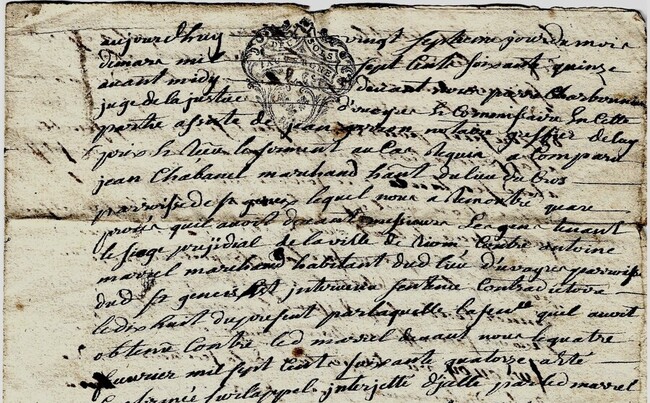 aujourd'huy vingt septieme jour du mois
de mars mil sept cents soixante quinze
avant midy devant nous pierre Charbonnier
juge de la justice d'ouci et Commissaire en cette
partie assisté de jean notaire greffier de luy
pris le serment au Cas requis a Comparu
jean Chabanet marchand habt du lieu du Gros
parroisse de st genes lequel nous a Remontré que
procès quil avoit devant messieurs Les gens tenant
le siege presidial de la ville de Riom Contre antoine
marcel marchand habitant dud lieu de vayres parroisse
dud st genes Est intervenu sentence Contradictoire
le dix huit du present par laquelle La sence quil avoit
obtenu Contre led marcel devant nous le quatre
fevrier mil sept Cents soixante quatorze a été
Confirmée sur lappel interjetté d'jcelle par led marcel